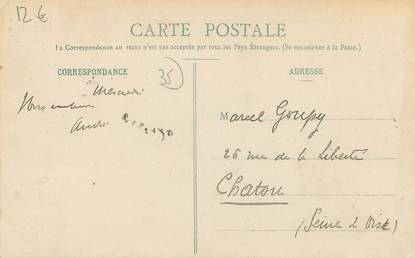 12 €
CARTE POSTALE
La Correspondance au recto n'est pas acceptée par tous les Pays Étrangers. (Se renseigner à la Poste.)
CORRESPONDANCE
35
Mercredi
André
ADRESSE
Marcel Goupy
26 rue de la Liberté
Chatou
(Seine & Oise)